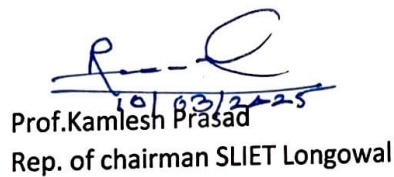 10/03/2025
Prof.Kamlesh Prasad
Rep. of chairman SLIET Longowal